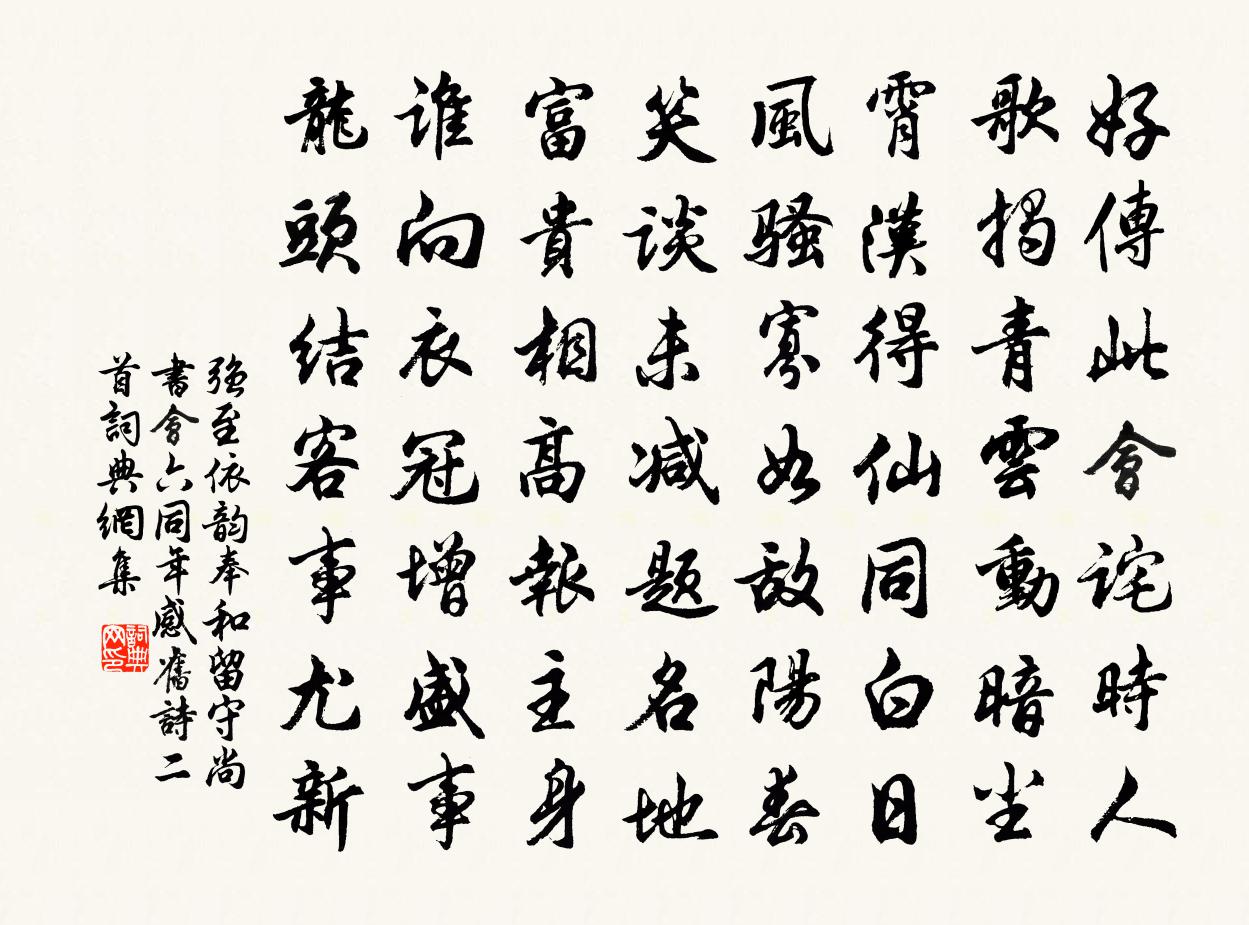 好傳此會詫時人
歌揭青雲動暗尘
霄漢得仙同白日
風騷寡如敌陽春
笑谈未减题名地
富貴相高報主身
谁向衣冠增盛事
龍頭结客事尤新
強至依韵奉和留守尚
書會六同年感舊詩二
首詞典網集
詞典网印